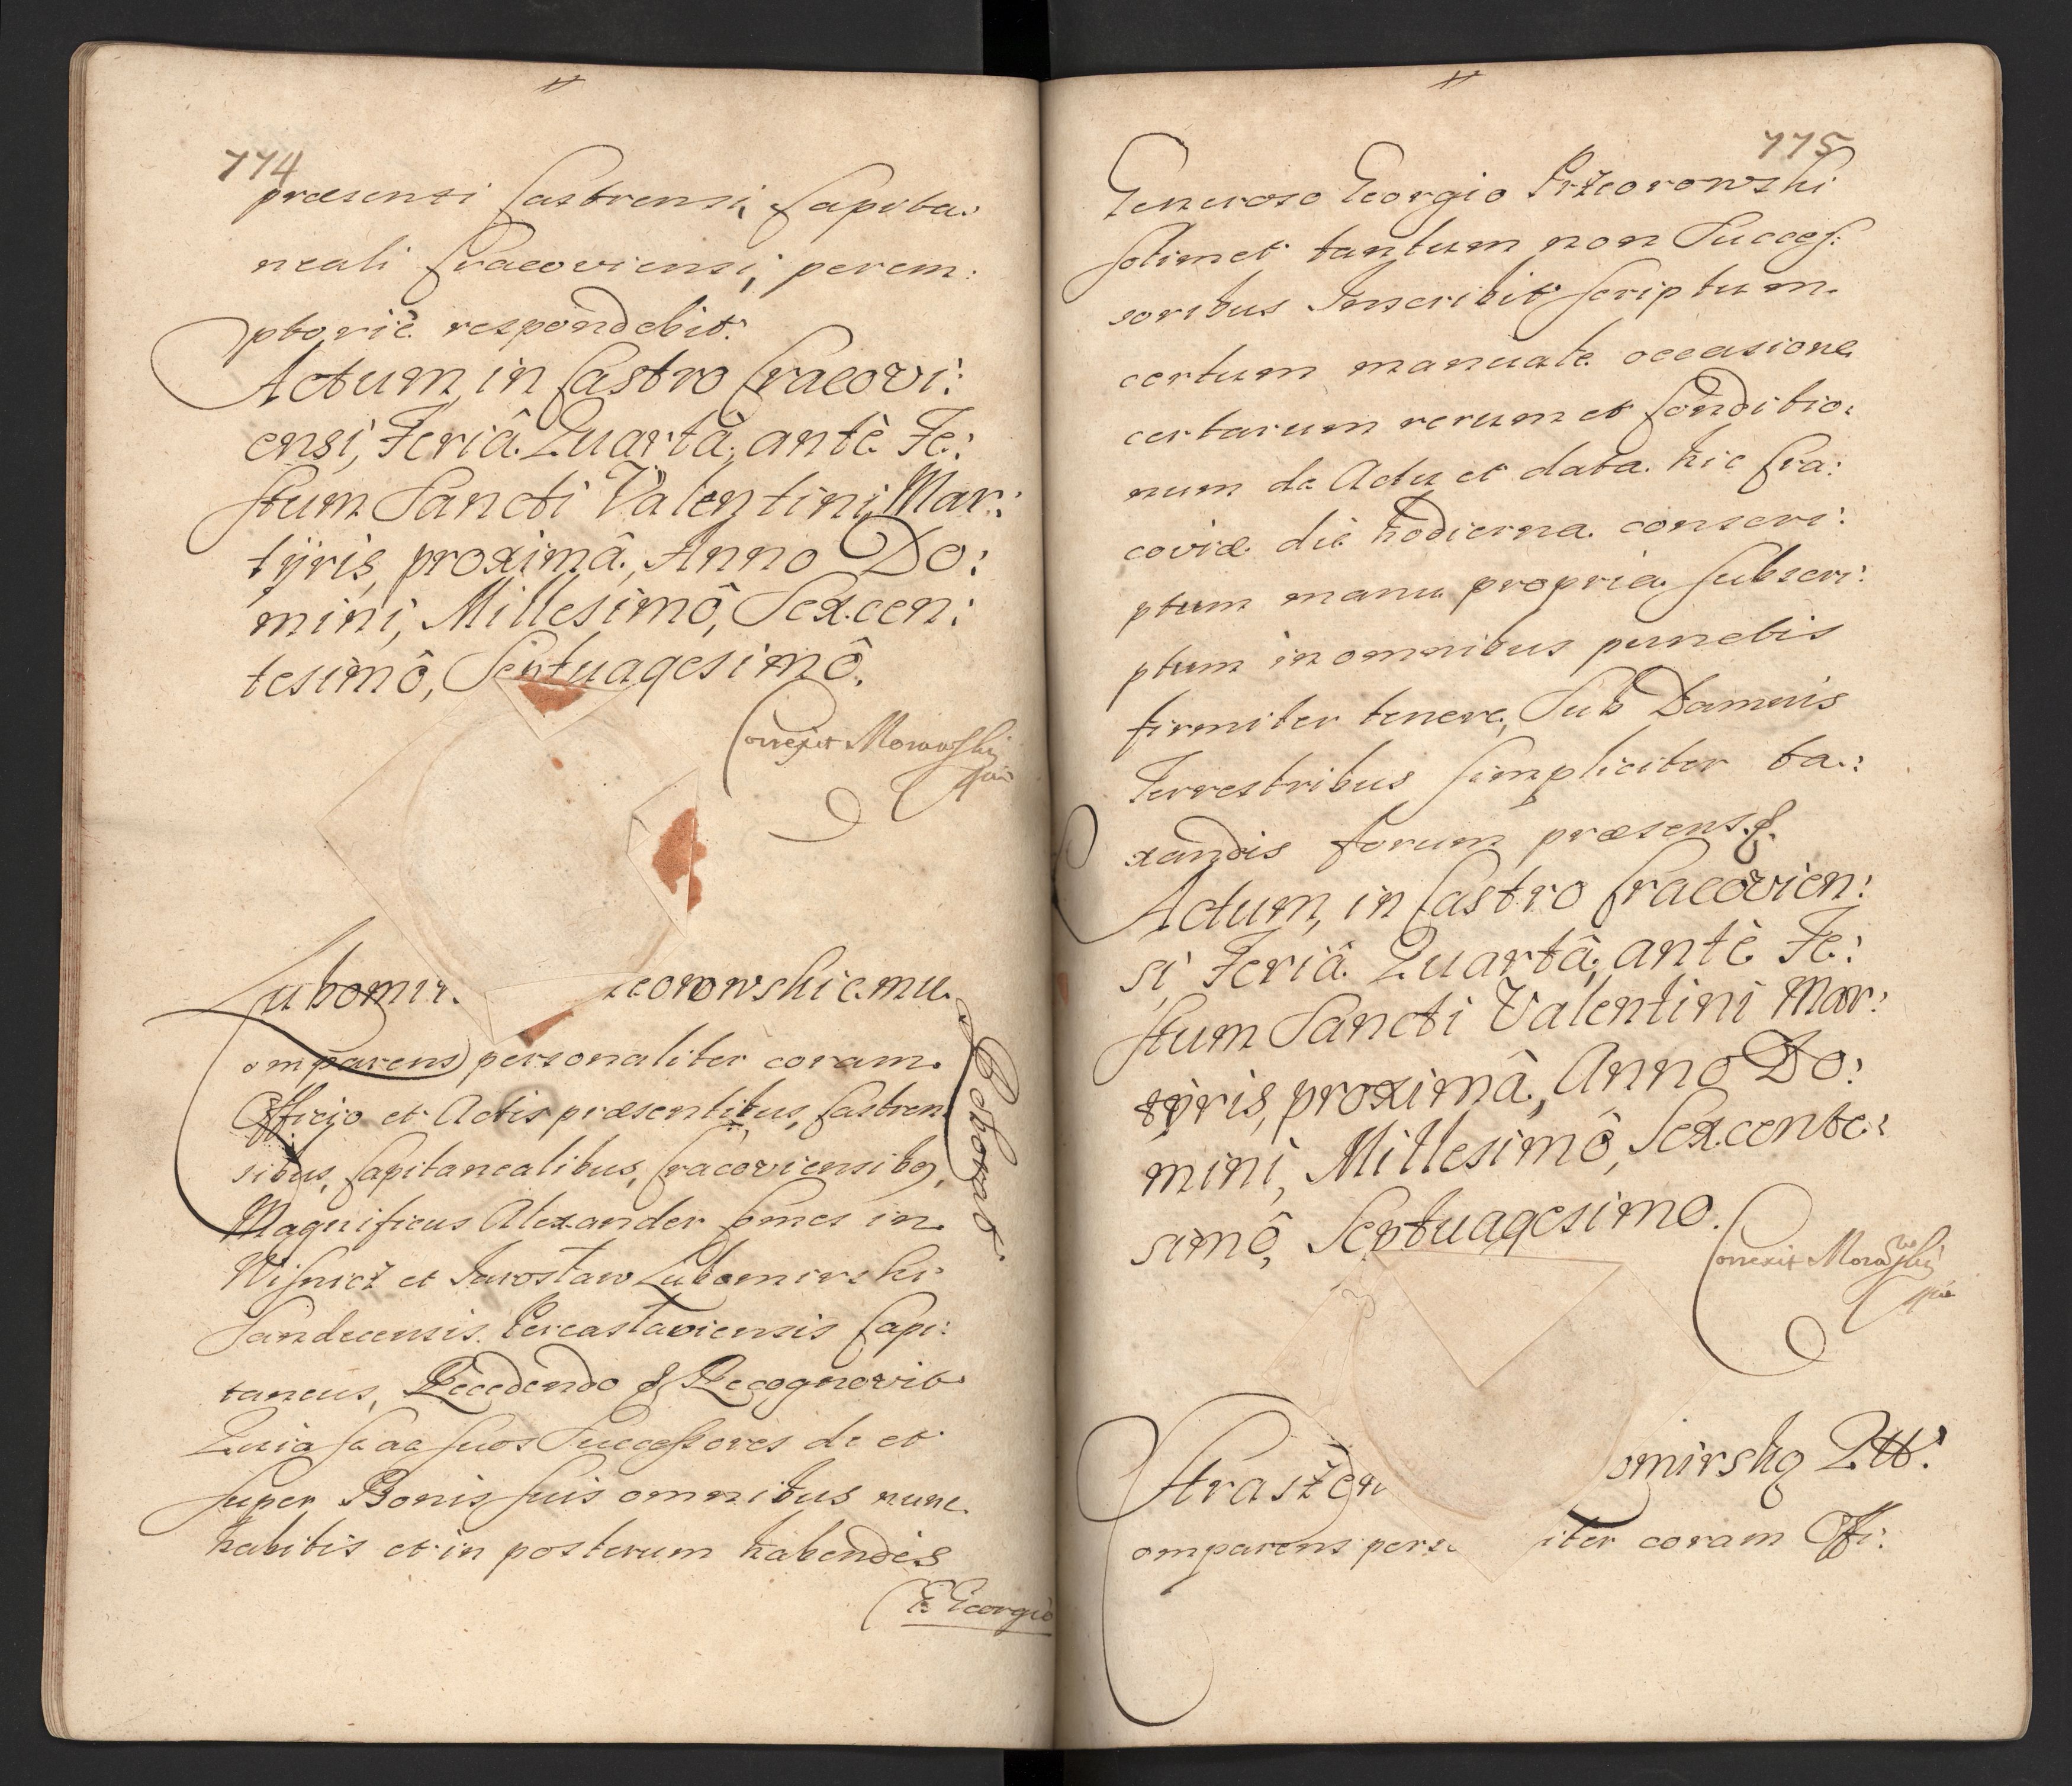 774
præsenti Castrensi, Capita:
neali Cracoviensi, perem:
ptoriè respondebit.
Actum, in Castro Cracovi:
ensi, Feriâ Quartâ, antè Fe:
stum Sancti Valentini, Mar:
tÿris, proximâ, Anno Do:
mini, Millesimô, Sexcen:
tesimô, Septuagesimô.
Correxit Morawski
Lubomir. zeorowskiemu.
Comparens personaliter coram.
Officio et Actis præsentibus, Castren
sibus, Capitanealibus, Cracoviensibq,
Magnificus Alexander Comes in
Wisnicz et Jarosław Lubomirski
Sandecensis Pereasłaviensis Capi:
taneus, Recedendo & Recognovit
Quia se ac suos Successores de et
super Bonis suis omnibus nunc
habitis et in posterum habendis
Roborat
G. Georgio
775
Generoso Georgio Przeorowski
solimet tantum non Succes:
soribus Inscribit scriptum
certum manuale occasione
certarum rerum et Conditio:
num de Actu et data hic Cra:
coviæ die hodierna conscri:
ptum manu propria subscri:
ptum in omnibus punctis
firmiter tenere, Sub Damnis
Terrestribus simpliciter ta:
xandis forum præsens &.
Actum, in Castro Cracovien:
si, Feriâ Quartâ, antè Fe:
stum Sancti Valentini Mar:
tÿris, proximâ, Anno Do:
mini, Millesimô, Sexcente:
simô, Septuagesimo.
Correxit Morawski
Strasze omirskg Qtt.
Comparens pers iter coram Offi: